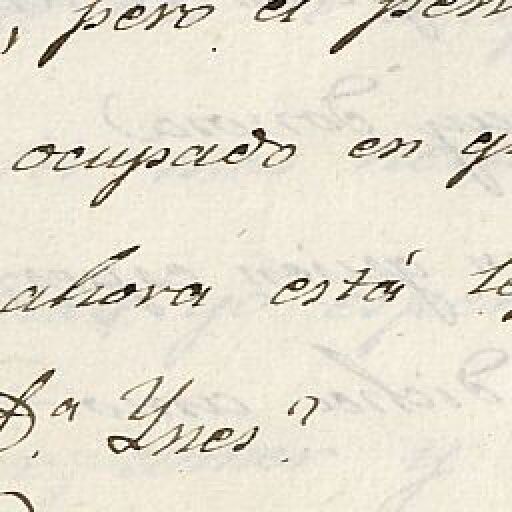 , pero el pen
ocupado en qu
ahora está le
D.ª Ynes?